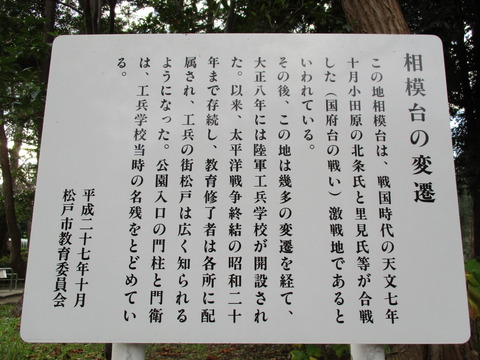 相模台の変遷
この地相模台は、戦国時代の天文七年
十月小田原の北条氏と里見氏等が合戦
した（国府台の戦い）激戦地であると
いわれている。
その後、この地は幾多の変遷を経て、
大正八年には陸軍工兵学校が開設され
た。以来、太平洋戦争終結の昭和二十
年まで存続し、教育修了者は各所に配
属され、工兵の街松戸は広く知られる
ようになった。公園入口の門柱と門衛
は、工兵学校当時の名残をとどめてい
る。
平成二十七年十月
松戸市教育委員会